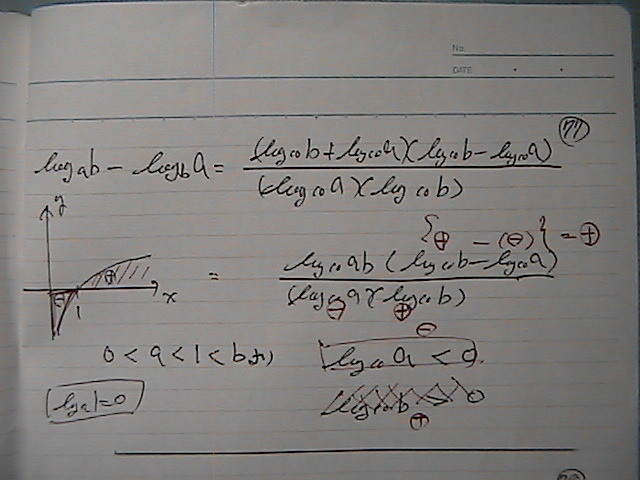 No.
DATE
77
log_a b − log_b a = (log₁₀b + log₁₀a)(log₁₀b − log₁₀a) / (log₁₀a)(log₁₀b)
y
{⊕ − (⊖)} = ⊕
= log₁₀ab (log₁₀b − log₁₀a) / (log₁₀a)(log₁₀b)
⊖ ⊕
⊖ ⊕ 1 x
⊖
0 < a < 1 < b より log₁₀a < 0.
⊕